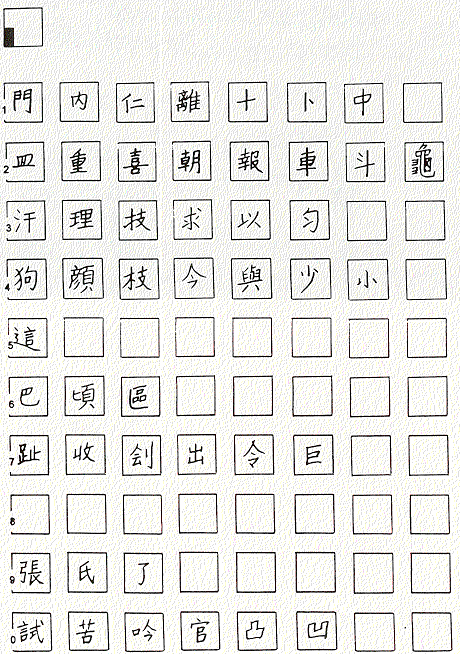 1 門 內 仁 離 十 卜 中
2 皿 重 喜 朝 報 車 斗 龜
3 汗 理 技 求 以 匀
4 狗 顔 枝 今 與 少 小
5 這
6 巴 頃 區
7 趾 收 刽 出 令 巨
8
9 張 氏 了
0 試 苦 吟 官 凸 凹